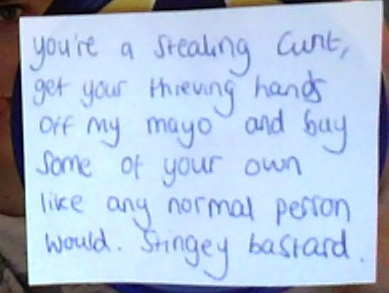 you're a stealing cunt,
get your thieving hands
off my mayo and buy
some of your own
like any normal person
would. Stingey bastard.